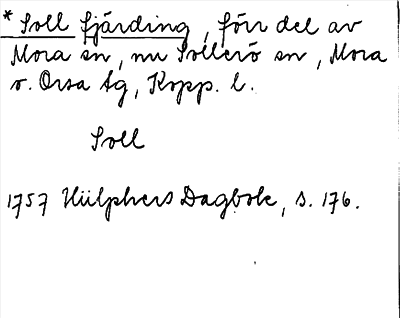 * Soll fjärding, förr del av
Mora sn, nu Sollerö sn, Mora
o. Orsa tg, Kopp. l.
Soll
1757 Hülphers Dagbok, s. 176.